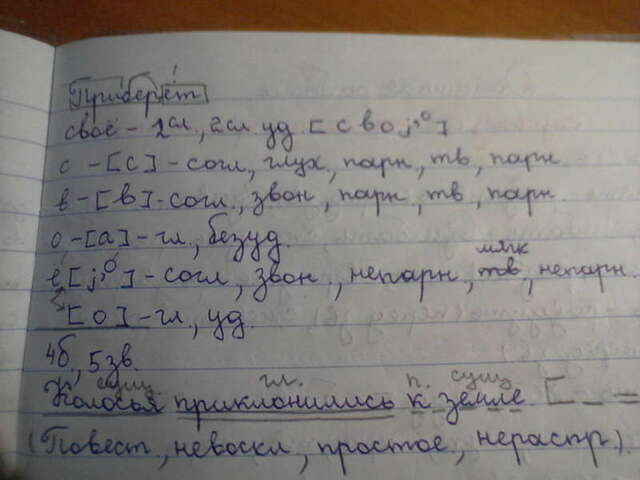 Приберёт
своё - 2сл., 2сл. уд. [сво j,о]
с - [с] - согл., глух, парн, тв, парн
в - [в] - согл., звон, парн, тв, парн.
о - [а] - гл., безуд.
мягк
ё [j,о] - согл., звон., непарн, тв, непарн.
[о] - гл., уд.
4б, 5 зв.
сущ. гл. п. сущ
Колосья приклонились к земле [_ =
(Повест., невоскл., простое, нераспр.).